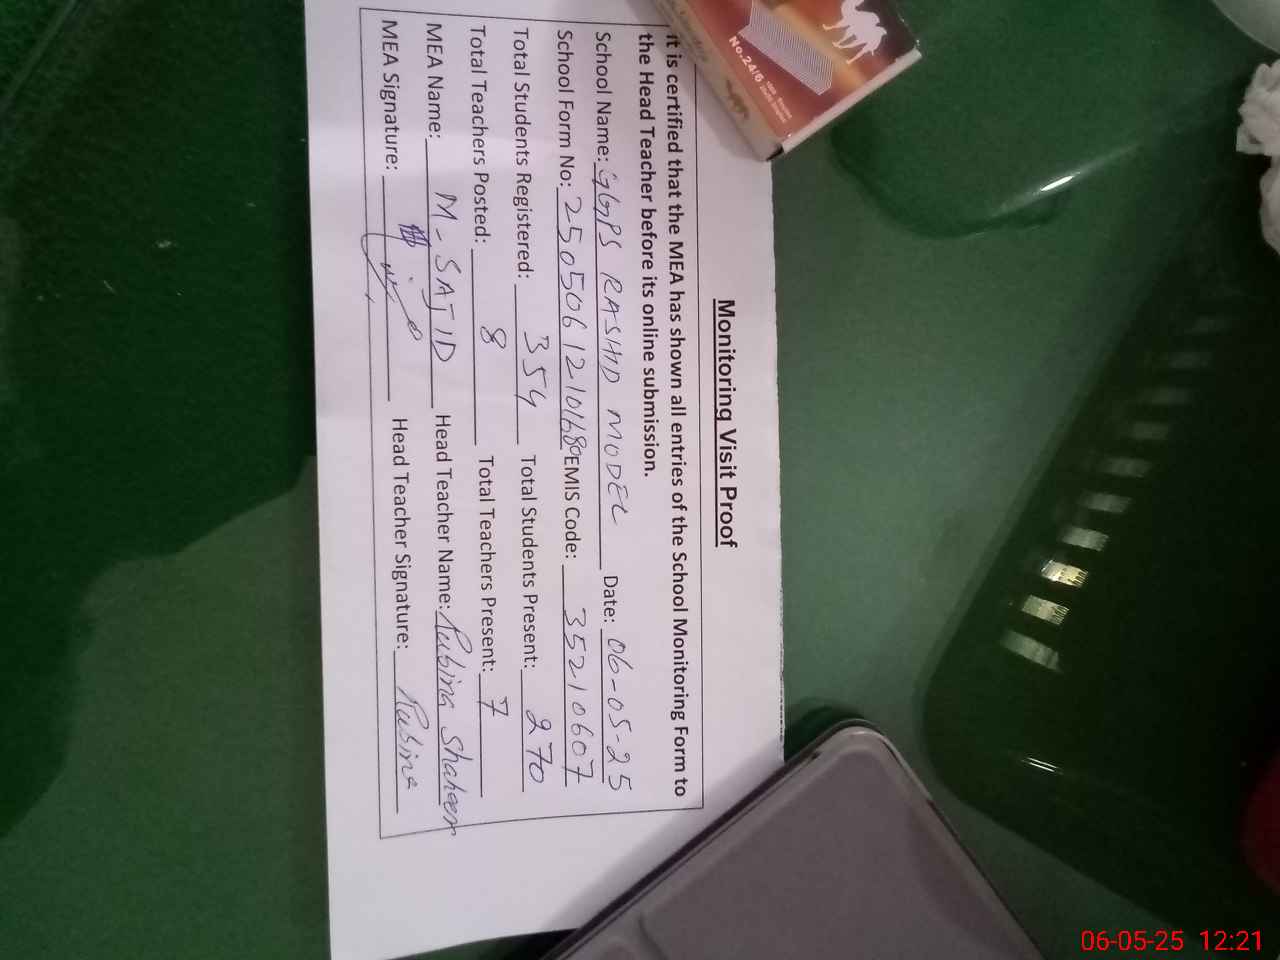 Monitoring Visit Proof
It is certified that the MEA has shown all entries of the School Monitoring Form to
the Head Teacher before its online submission.
School Name: GGPS RASHID MODEL Date: 06-05-25
School Form No: 25050612101680 EMIS Code: 35210607
Total Students Registered: 354 Total Students Present: 270
Total Teachers Posted: 8 Total Teachers Present: 7
MEA Name: M-SAJID Head Teacher Name: Rubina Shaheen
MEA Signature: Head Teacher Signature: Rubina
No.24/6
06-05-25 12:21